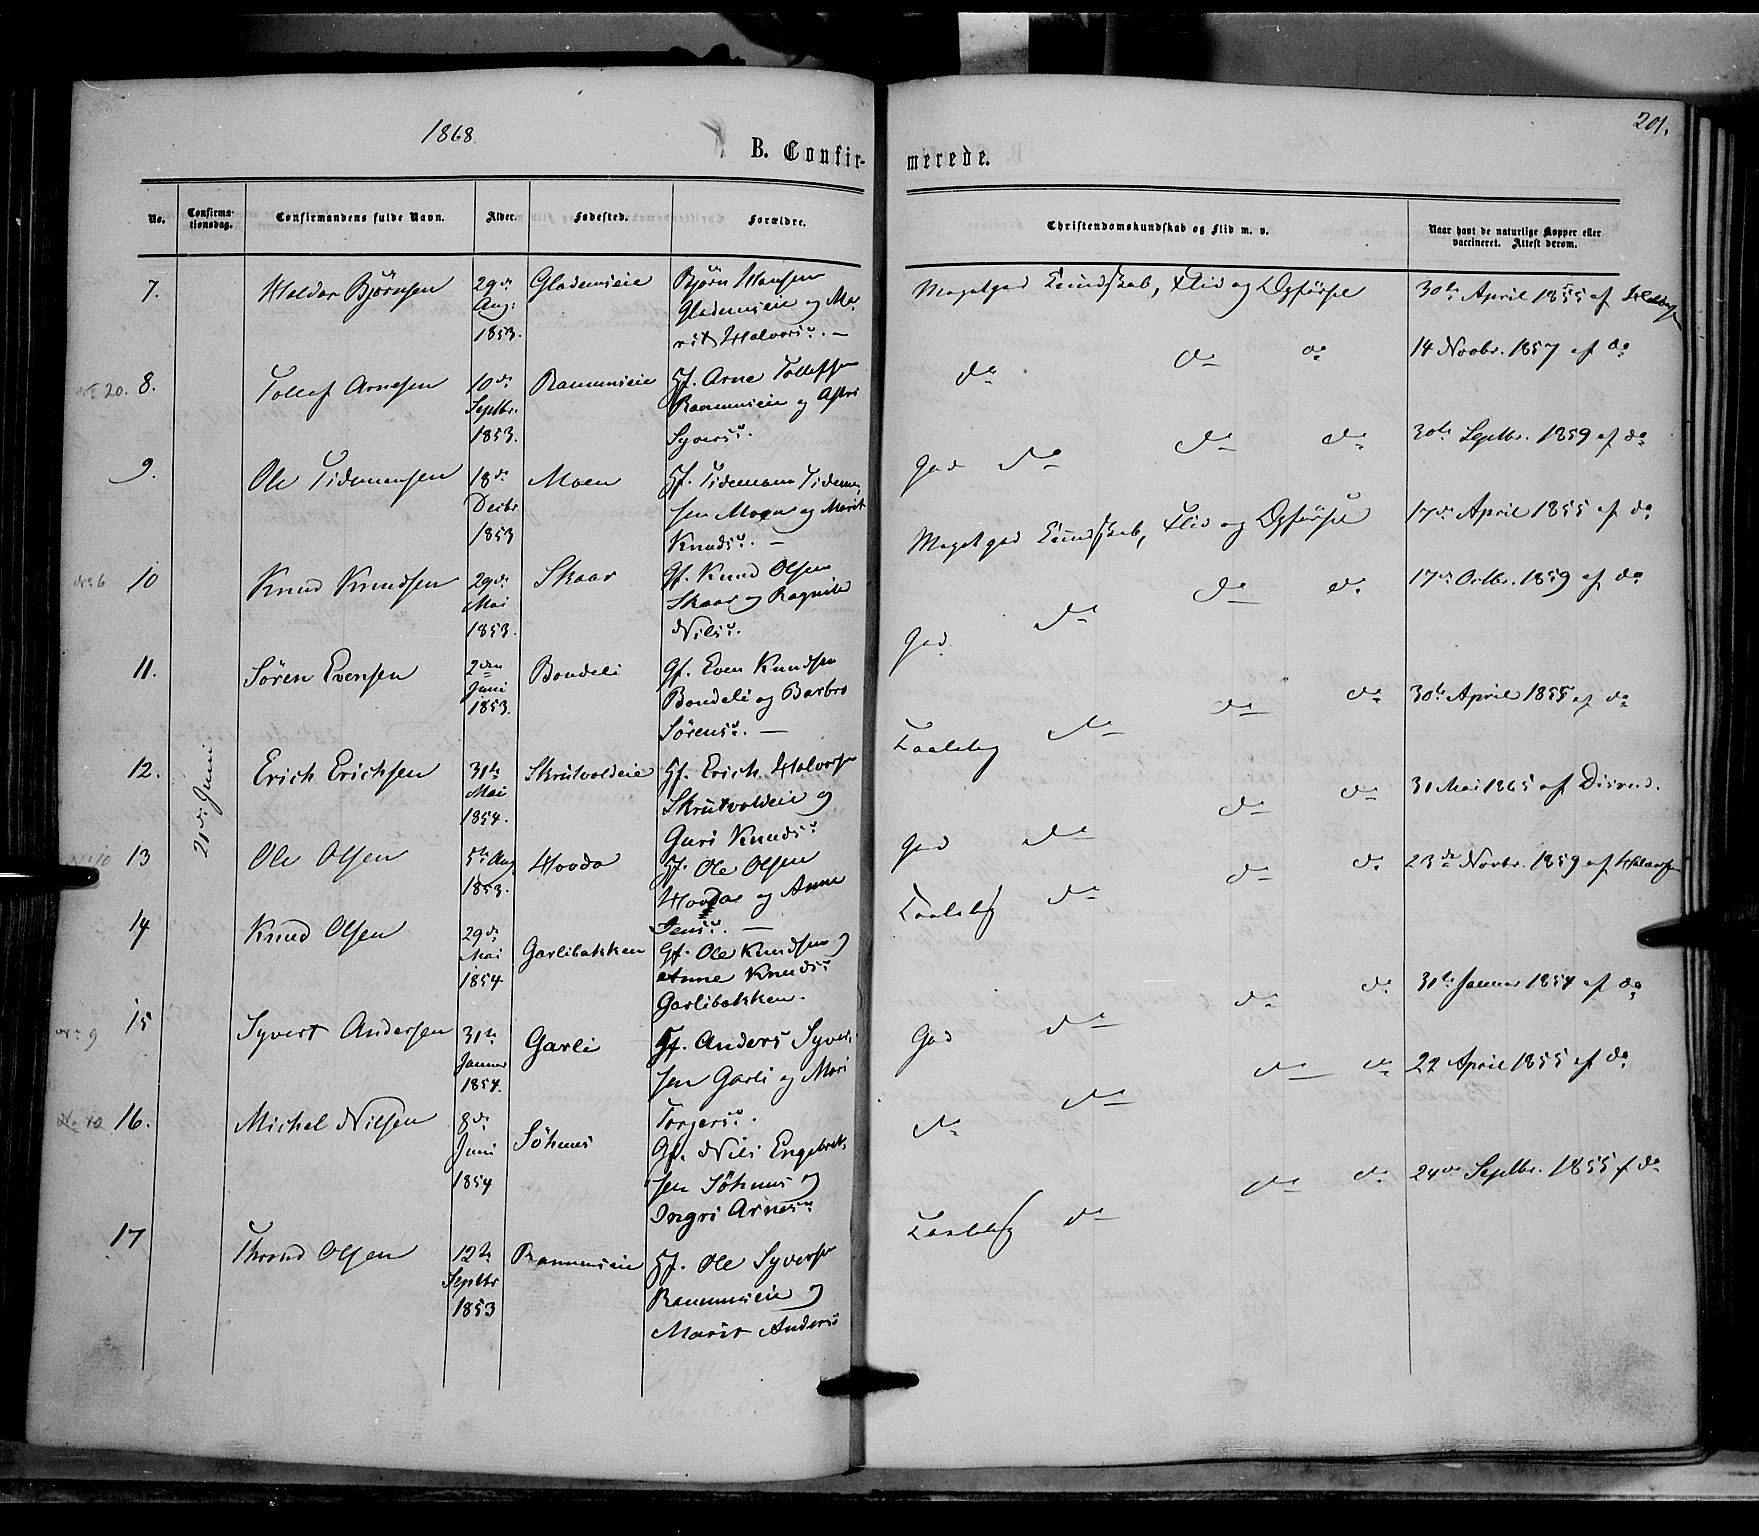 1868.
201.
B. Confirmerede.
No. Confirmationsdag. Confirmandens fulde Navn. Alder. Fødested. Forældre. Christendomskundskab og Flid m. v. Naar havt de naturlige Kopper eller vaccineret. Attest derom.
21de Juni
7. Haldor Bjørnsen 29de Aug: 1853. Gladensieie Bjørn Hansen Gladensieie og Marit Halvors:. — Megetgod Kundskab, Flid og Opførsel 30te April 1855 af
No 20. 8. Tollef Arnesen 10de Septbr. 1853. Ramunseie Gf. Arne Tollefsen Ramunseie og Astri Syvers:. do do do 14 Novbr. 1857 af do
9. Ole Tidemansen 18de Decbr 1853 Moen Gf. Tidemann Tidemansen Moen og Marit Knuds:. — God do do do 30te Septbr. 1859 af do
No 6 10 Knud Knudsen 29de Mai 1853. Skaar Gf. Knud Olsen Skaar og Ragnild Nils:. Megetgod Kundskab, Flid og Opførsel 17de April 1855 af do
11. Søren Evensen 2den Juni 1853. Bondeli Gf. Even Knudsen Bondeli og Barbro Sørens:. — God do do do 17de Octbr. 1859 af do
12. Erich Erichsen 31te Mai 1854. Skrutvoldeie Gf. Erich Halvorsen Skrutvoldeie og Guri Knuds: Taalelig do do do 30te April 1855 af do
No 10 13 Ole Olsen 5te Aug 1853. Hovda Gf. Ole Olsen Hovda og Anne Jens:. — God do do do 31 Mai 1865 af Disrud.
14 Knud Olsen 29de Mai 1854 Garlibakken Gf. Ole Knudsen og Anne Knuds: Garlibakken. Taalelig do do do 23de Novbr. 1859 af
No 9 15 Syvert Andersen 31te Januar 1854. Garli Gf. Anders Syversen Garli og Mari Torgers:. God do do do 31te Januar 1854 af do
No 12 16. Michel Nilsen 8de Juni 1854 Søhnes Gf. Nils Engebretsen Søhnes og Ingri Arnes: do do do do 22 April 1855 af do
17 Thrond Olsen 12te Septbr 1853 Ramunseie Gf. Ole Syversen Ramunseie og Marit Anders: Taalelig do do do 24de Septbr. 1855 af do